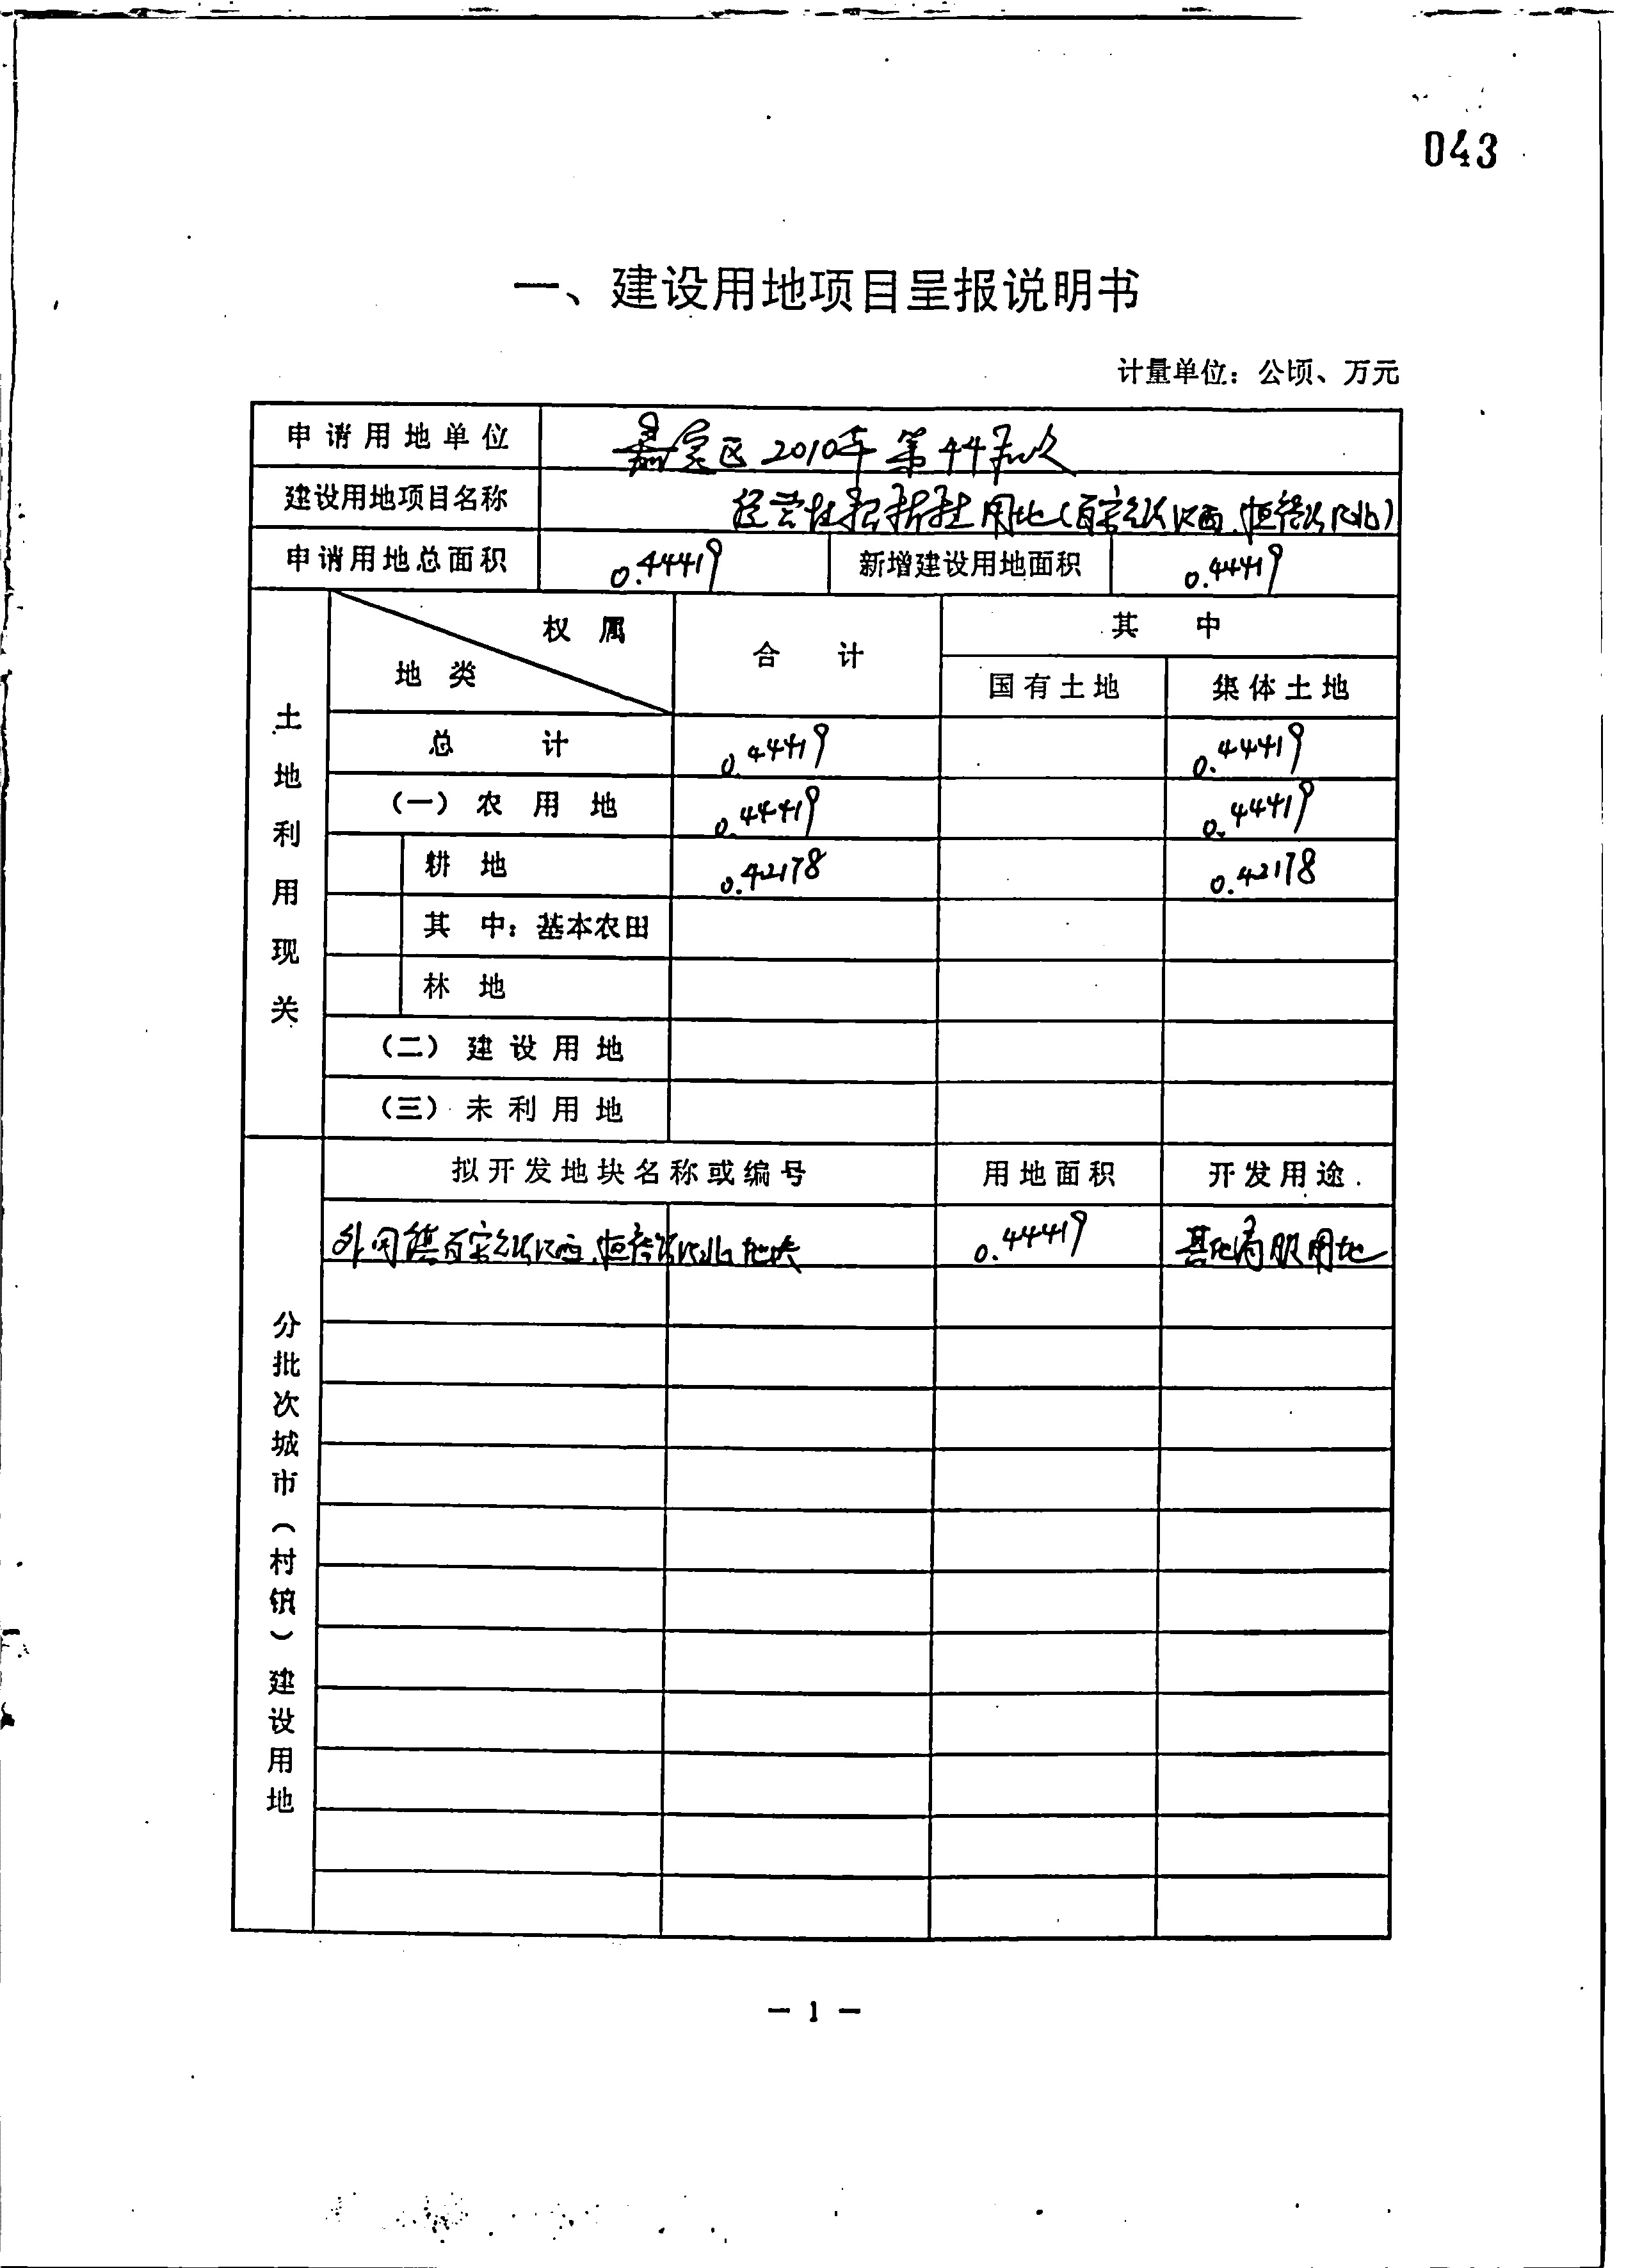 043
一、建设用地项目呈报说明书
计量单位：公顷、万元
申请用地单位 嘉定区2010年第44批次
建设用地项目名称 经营性招拍挂用地（百安公路以西、恒裕路以北）
申请用地总面积 0.44419 新增建设用地面积 0.44419
土地利用现关
权属 地类 合计 其中
国有土地 集体土地
总计 0.44419 0.44419
（一）农用地 0.44419 0.44419
耕地 0.42178 0.42178
其中：基本农田
林地
（二）建设用地
（三）未利用地
分批次城市（村镇）建设用地
拟开发地块名称或编号 用地面积 开发用途
外冈镇百安公路以西、恒裕路以北地块 0.44419 其他商服用地
— 1 —